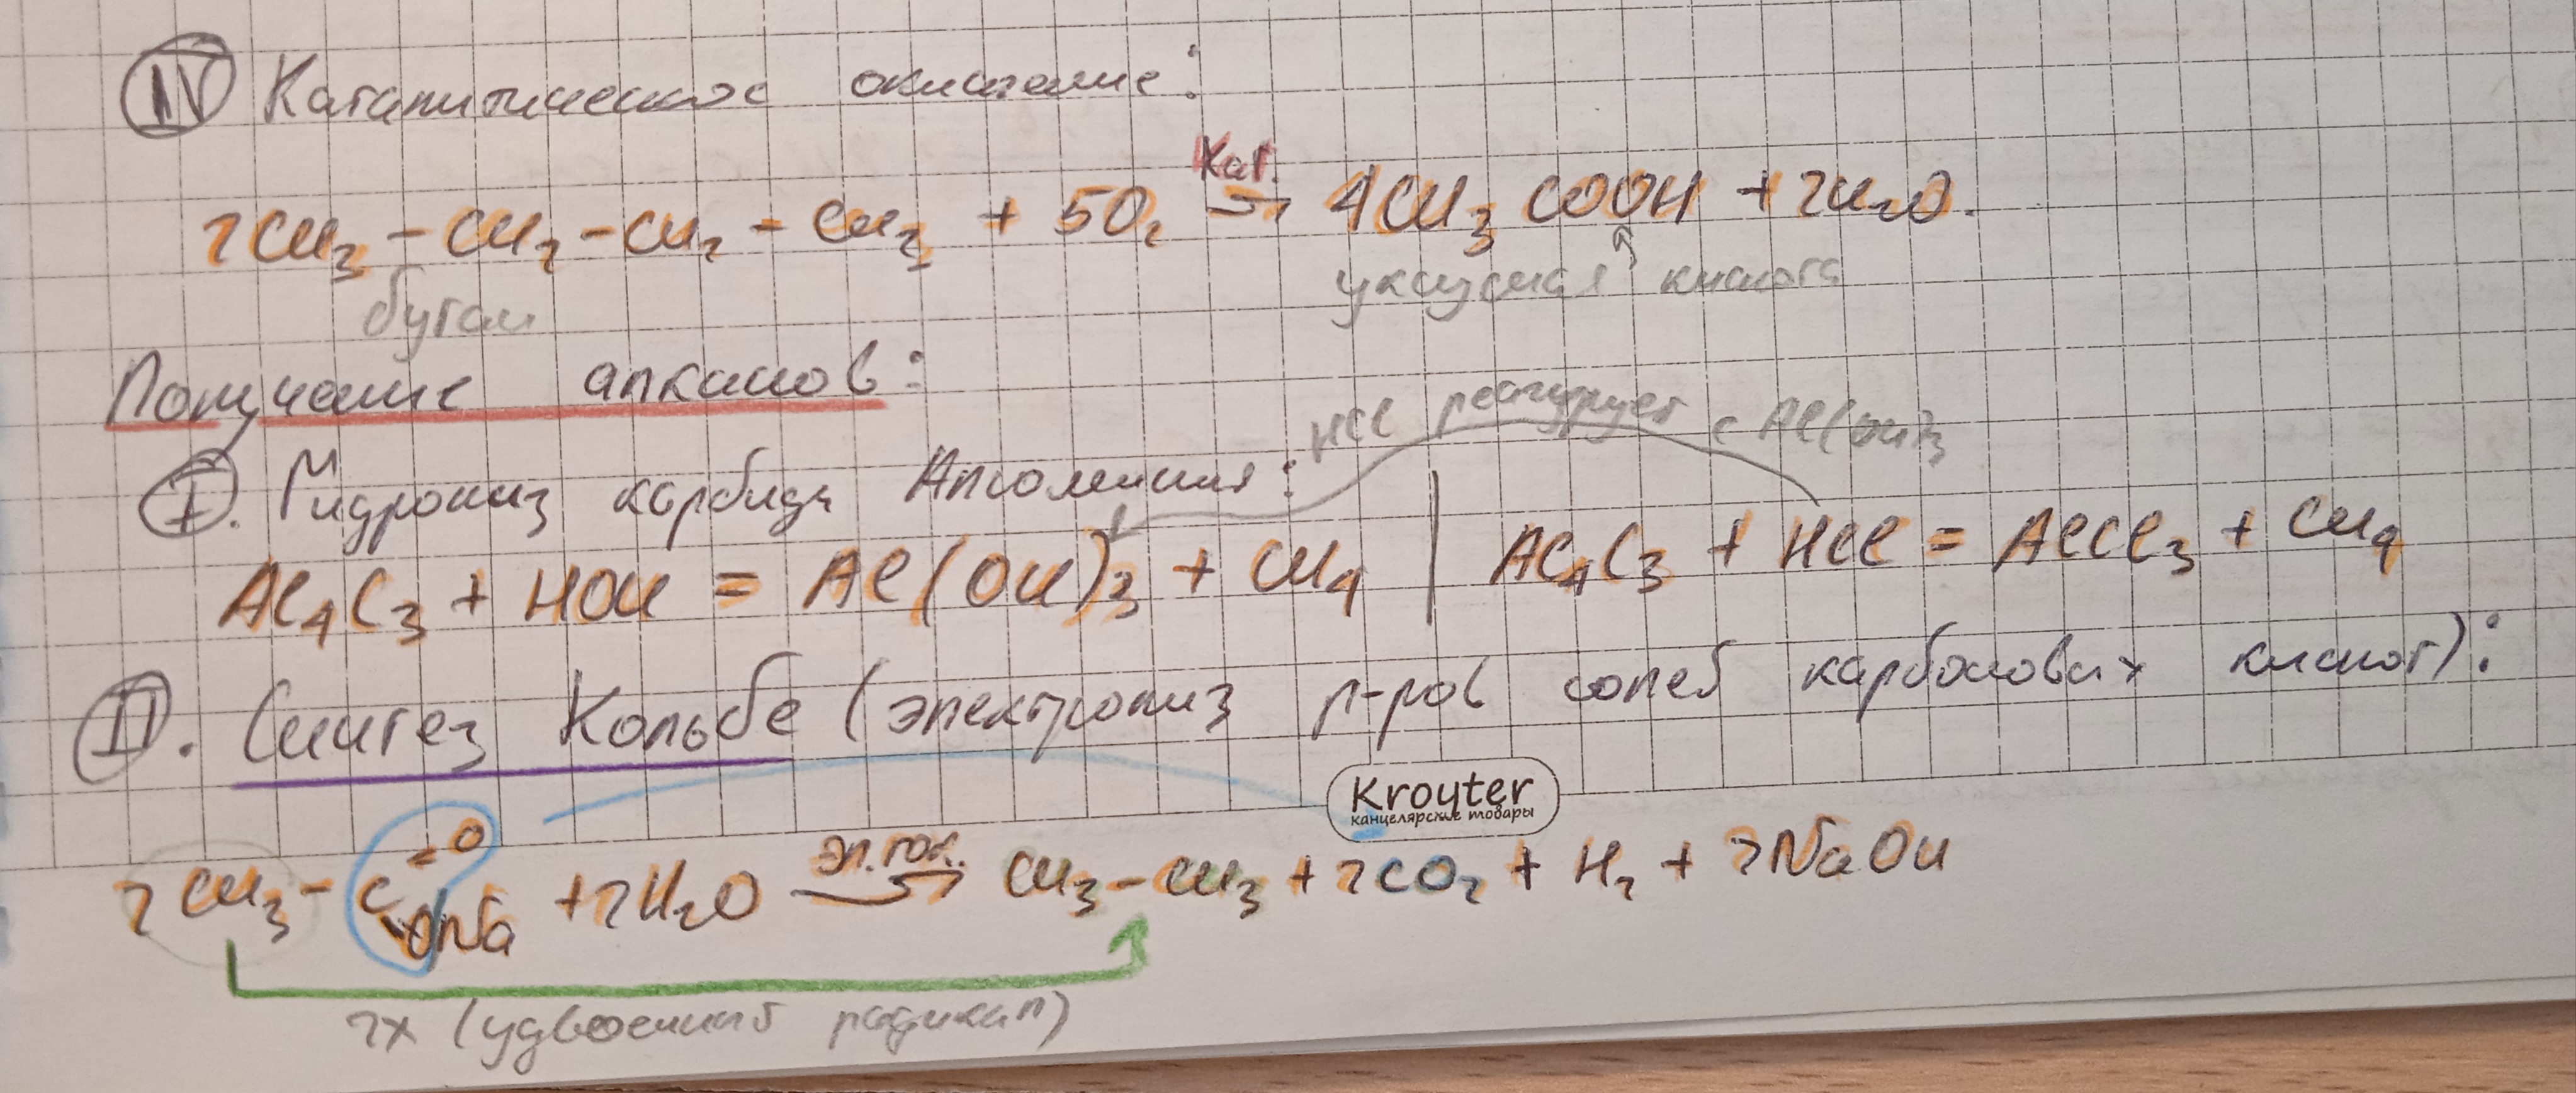 IV Каталитическое окисление:
Кат.
2CH₃ – CH₂ – CH₂ – CH₃ + 5O₂ → 4CH₃COOH + 2H₂O.
бутан уксусная кислота
Получение алканов:
HCl реагирует с Al(OH)₃
I. Гидролиз карбида Алюминия:
Al₄C₃ + HOH = Al(OH)₃ + CH₄ | Al₄C₃ + HCl = AlCl₃ + CH₄
II. Синтез Кольбе (электролиз р-ров солей карбоновых кислот):
Kroyter
канцелярские товары
эл. ток.
2CH₃ – C =O \ONa + 2H₂O → CH₃ – CH₃ + 2CO₂ + H₂ + 2NaOH
2x (удвоенный радикал)